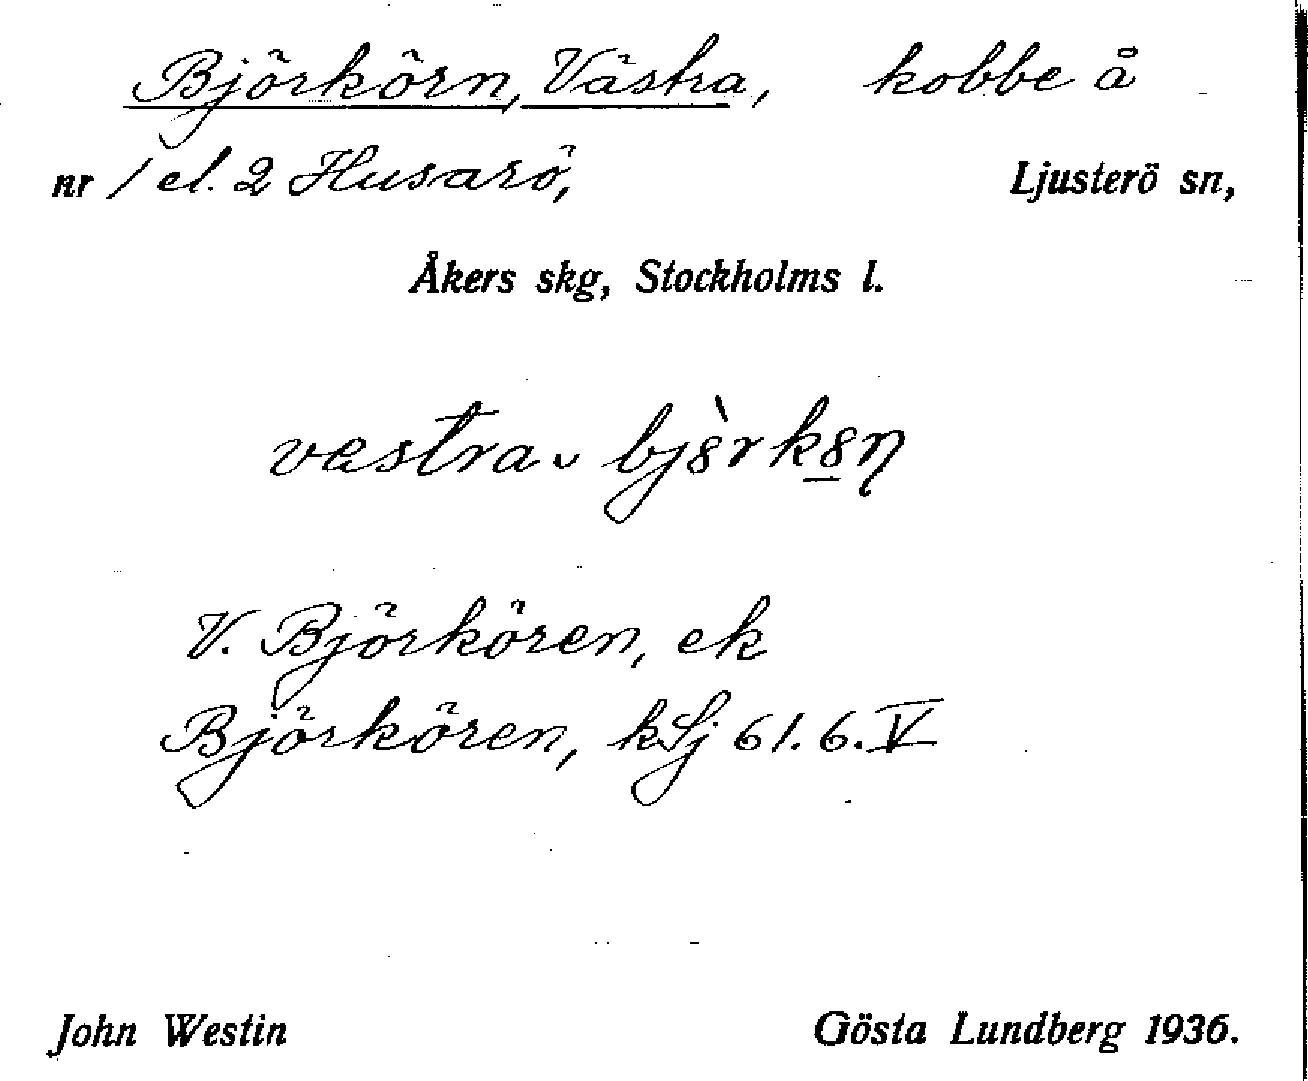 Björkörn, Västra, kobbe å
nr 1 el. 2 Husarö, Ljusterö sn,
Åkers skg, Stockholms l.
vestra ᴗ bjȣ̀rkȣ̠ɳ
V. Björkören, ek
Björkören, kSj 61.6.V
John Westin Gösta Lundberg 1936.